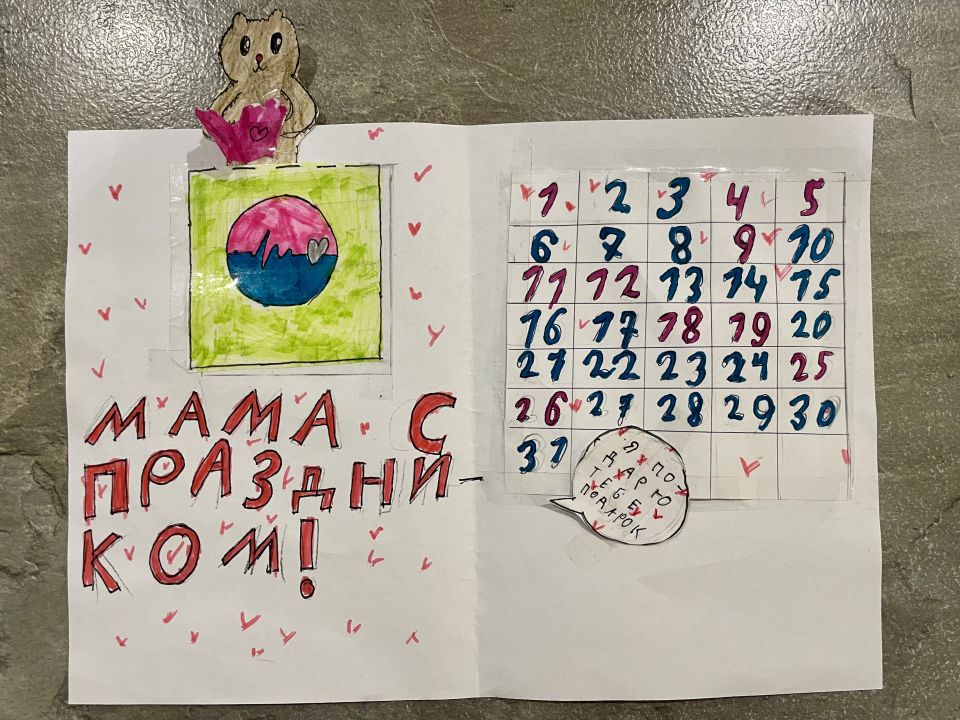 МАМА С
ПРАЗДНИ-
КОМ!
1 2 3 4 5
6 7 8 9 10
11 12 13 14 15
16 17 18 19 20
21 22 23 24 25
26 27 28 29 30
31
Я ПО-
ДАРЮ
ТЕБЕ
ПОДАРОК